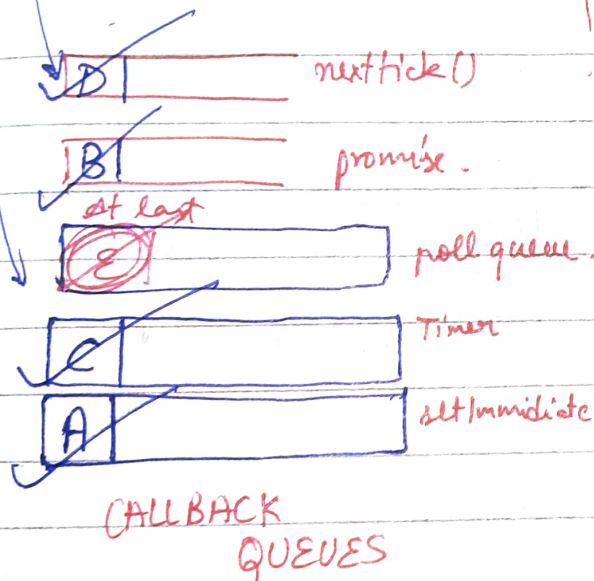 D nexttick()
B promise.
At last
E poll queue.
C Timer
A setImmidiate
CALLBACK
QUEUES